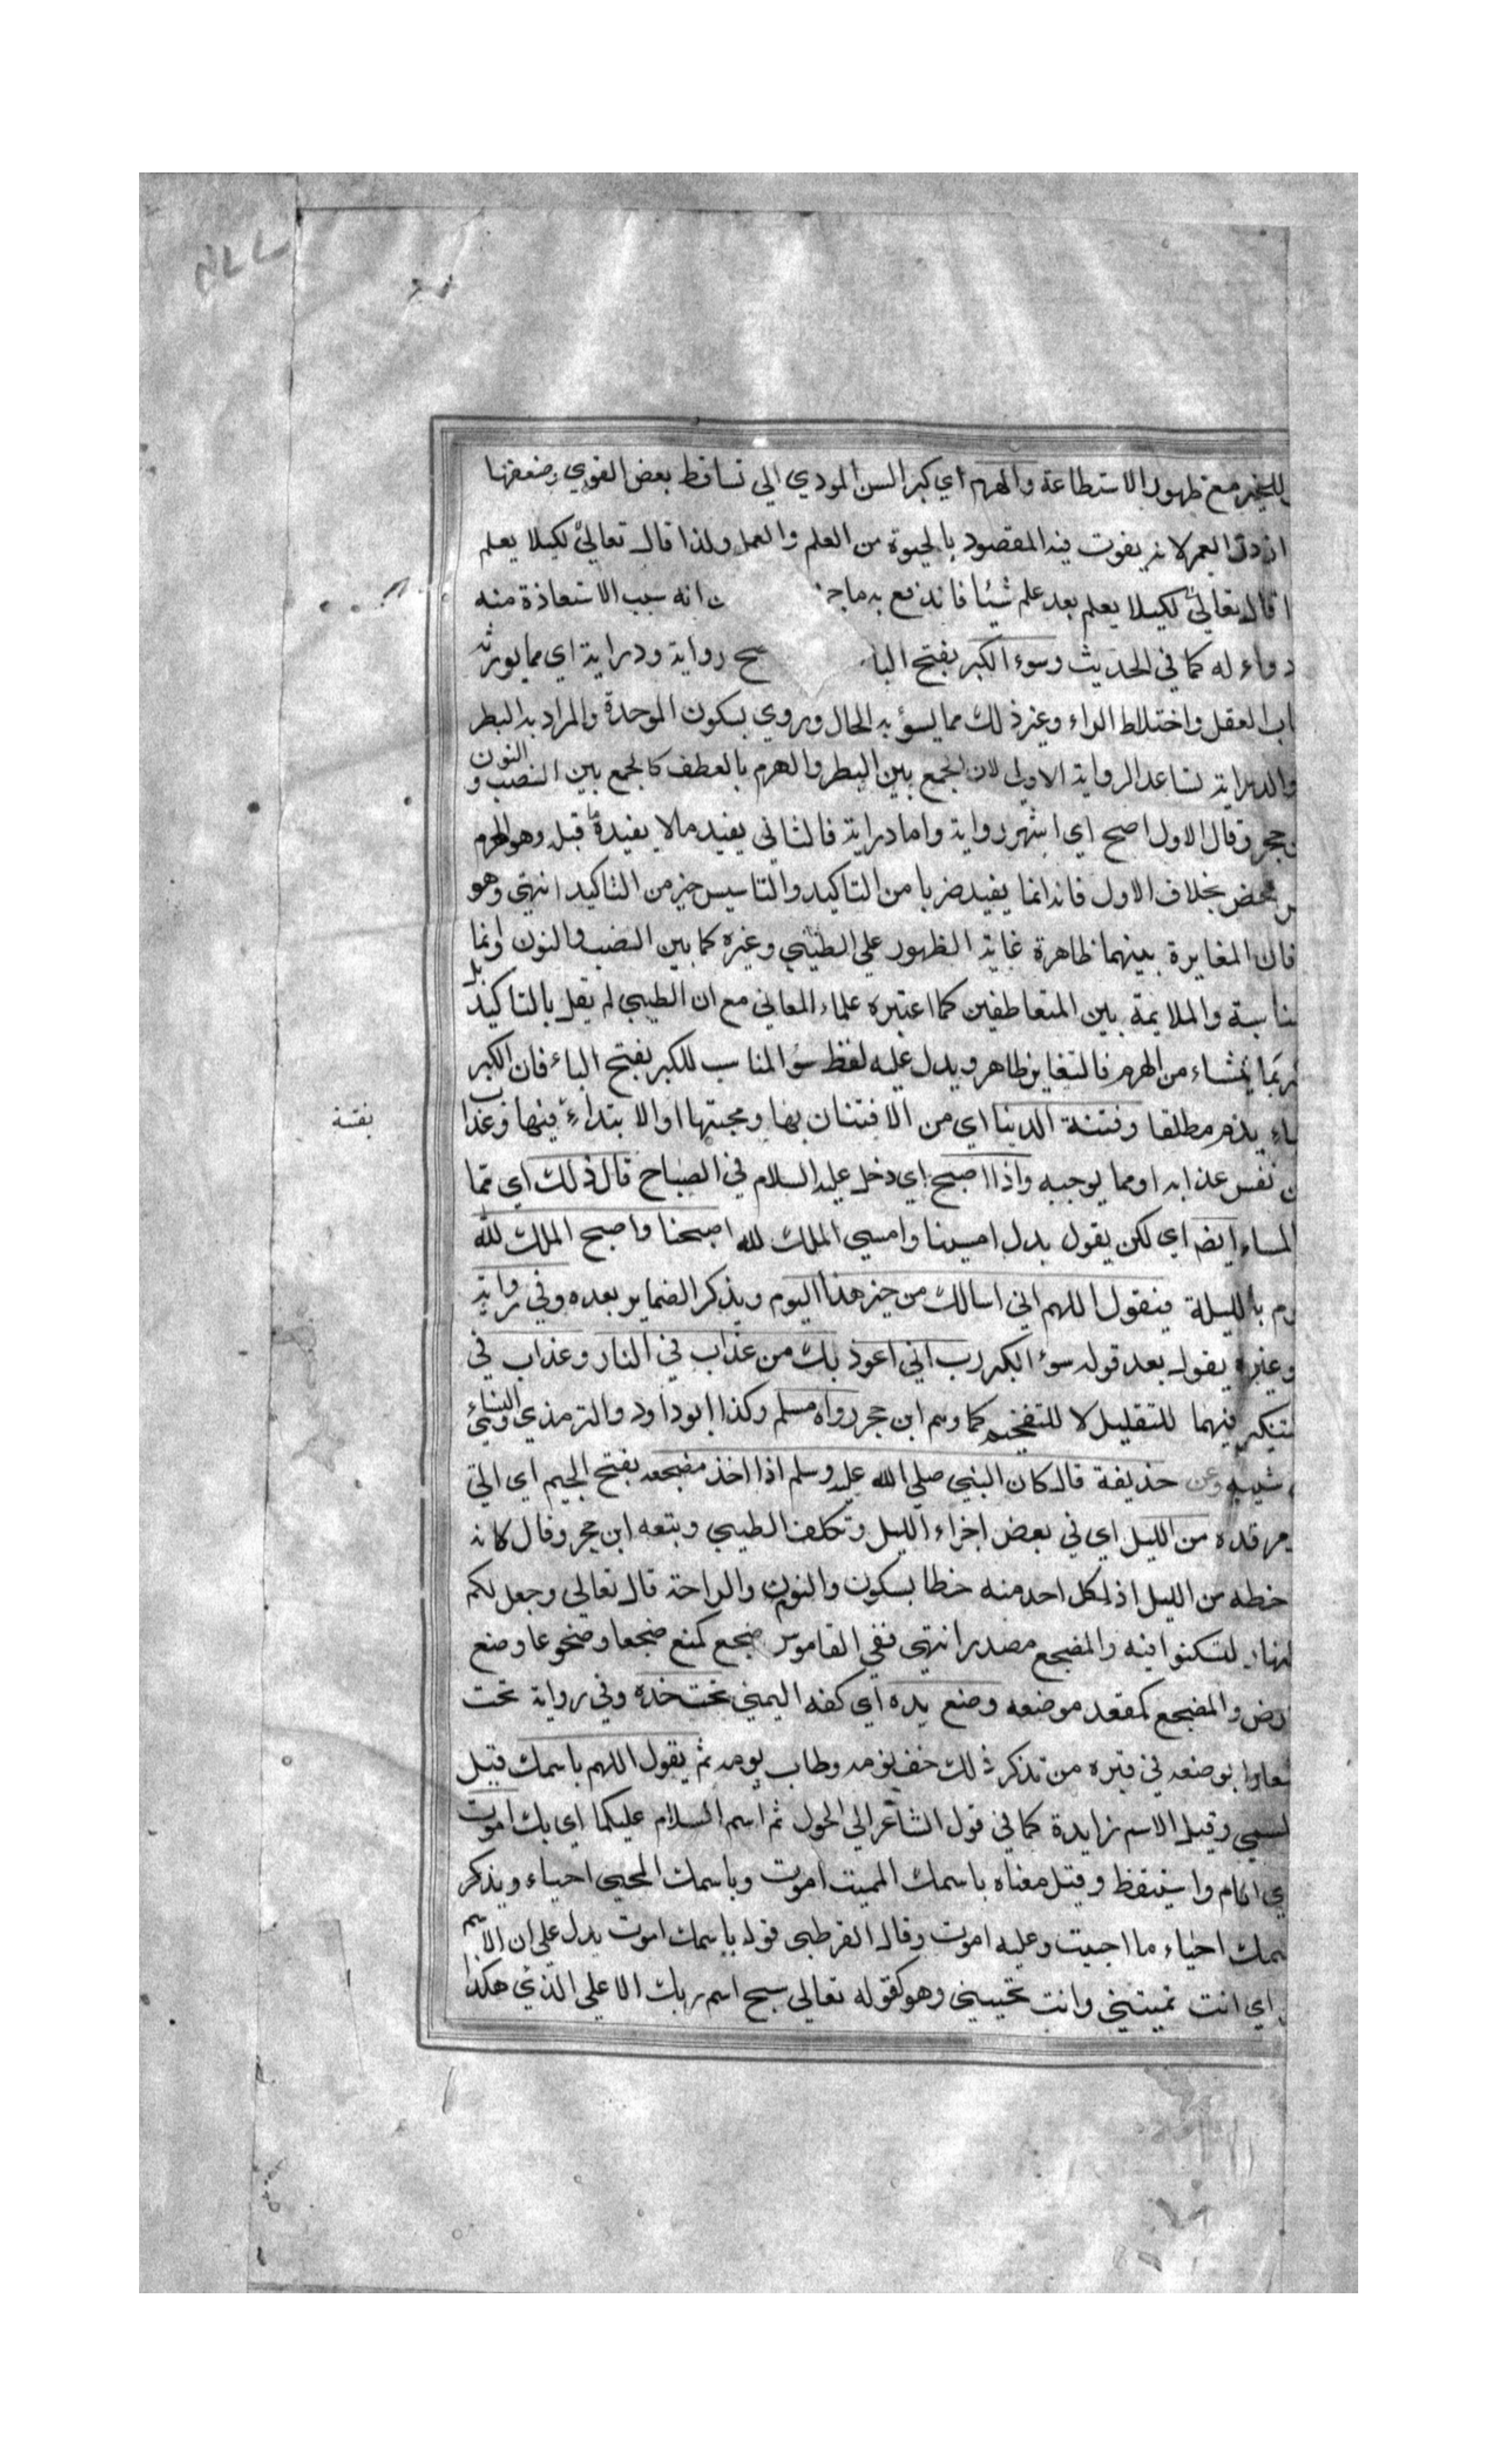 للخير مع ظهور الاستطاعة والهرم اي كبر السن المودي الي تساقط بعض القوي وضعفها
ارذل العمر لانه يفوت فيه المقصود بالحيوة من العلم والعمل ولذا قال تعالي لكيلا يعلم
قال تعالي لكيلا يعلم بعد علم شيئا فاندفع به ما انه سبب الاستعاذة منه
دواء له كما في الحديث وسوء الكبر بفتح البا رواية ودراية اي مما يورثه
العقل واختلاط الراء وغير ذلك مما يسؤ به الحال وروي بسكون الموحدة والمراد به البطر
والدراية تساعد الرواية الاولي لان الجمع بين البطر والهرم بالعطف كالجمع بين الضب و النون
حجر وقال الاول اصح اي اشهر رواية واما دراية فالثاني يفيد مالا يفيدة ما قبله وهو الهرم
بخلاف الاول فانه انما يفيد ضربا من التاكيد والتاسيس خير من التاكيد انتهي وهو
فان المغايرة بينهما ظاهرة غاية الظهور علي الطيبي وغيره كما بين الضب والنون وانما
والملايمة بين المتعاطفين كما اعتبره علماء المعاني مع ان الطيبي لم يقل بالتاكيد بل
من الهرم فالتغاير ظاهر ويدل عليه لفظ سؤ المناسب للكبر بفتح الباء فان الكبر
يذم مطلقا وفتنة الدنيا اي من الافتتان بها ومحبتها او الابتداء فيها وعذاب
نفس عذابه او مما يوجبه واذا اصبح اي دخل عليه السلام في الصباح قال ذلك اي مما
المساء ايضا اي لكن يقول بدل امسينا وامسي الملك لله اصبحنا واصبح الملك لله
بالليلة فيقول اللهم اني اسالك من خير هذا اليوم ويذكر الضماير بعده وفي رواية
وغيره يقول بعد قوله سوء الكبر رب اني اعوذ بك من عذاب في النار وعذاب في
فيهما للتقليل لا للتفخيم كما وسم ابن حجر رواه مسلم وكذا ابو داود والترمذي والنسائي
وعن حذيفة قال كان النبي صلي الله عليه وسلم اذا اخذ مضجعه بفتح الجيم اي التي
مرقده من الليل اي في بعض اجزاء الليل وتكلف الطيبي وبتعه ابن حجر وقال كانه
حظه من الليل اذ لكل احد منه حظا بسكون والنوم والراحة قال تعالي وجعل لكم
لتسكنوا فيه والمضجع مصدر انتهي ففي القاموس ضجع كمنع ضجعا وضجوعا وضع
والمضجع كمقعد موضعه وضع يده اي كفه اليمني تحت خده وفي رواية تحت
بوضعه في قبره من تذكر ذلك خف نومه وطاب يومه ثم يقول اللهم باسمك قيل
وقيل الاسم زايدة كما في قول الشاعر الي الحول ثم اسم السلام عليكما اي بك اموت
اي انام واستيقظ وقيل معناه باسمك المميت اموت وباسمك المحيي احياء ويذكر
احياء ما احييت وعليه اموت وقال القرطبي قوله باسمك اموت يدل علي ان الاسم
اي انت تميتني وانت تحييني وهو كقوله تعالي سبح اسم ربك الاعلي الذي هكذا